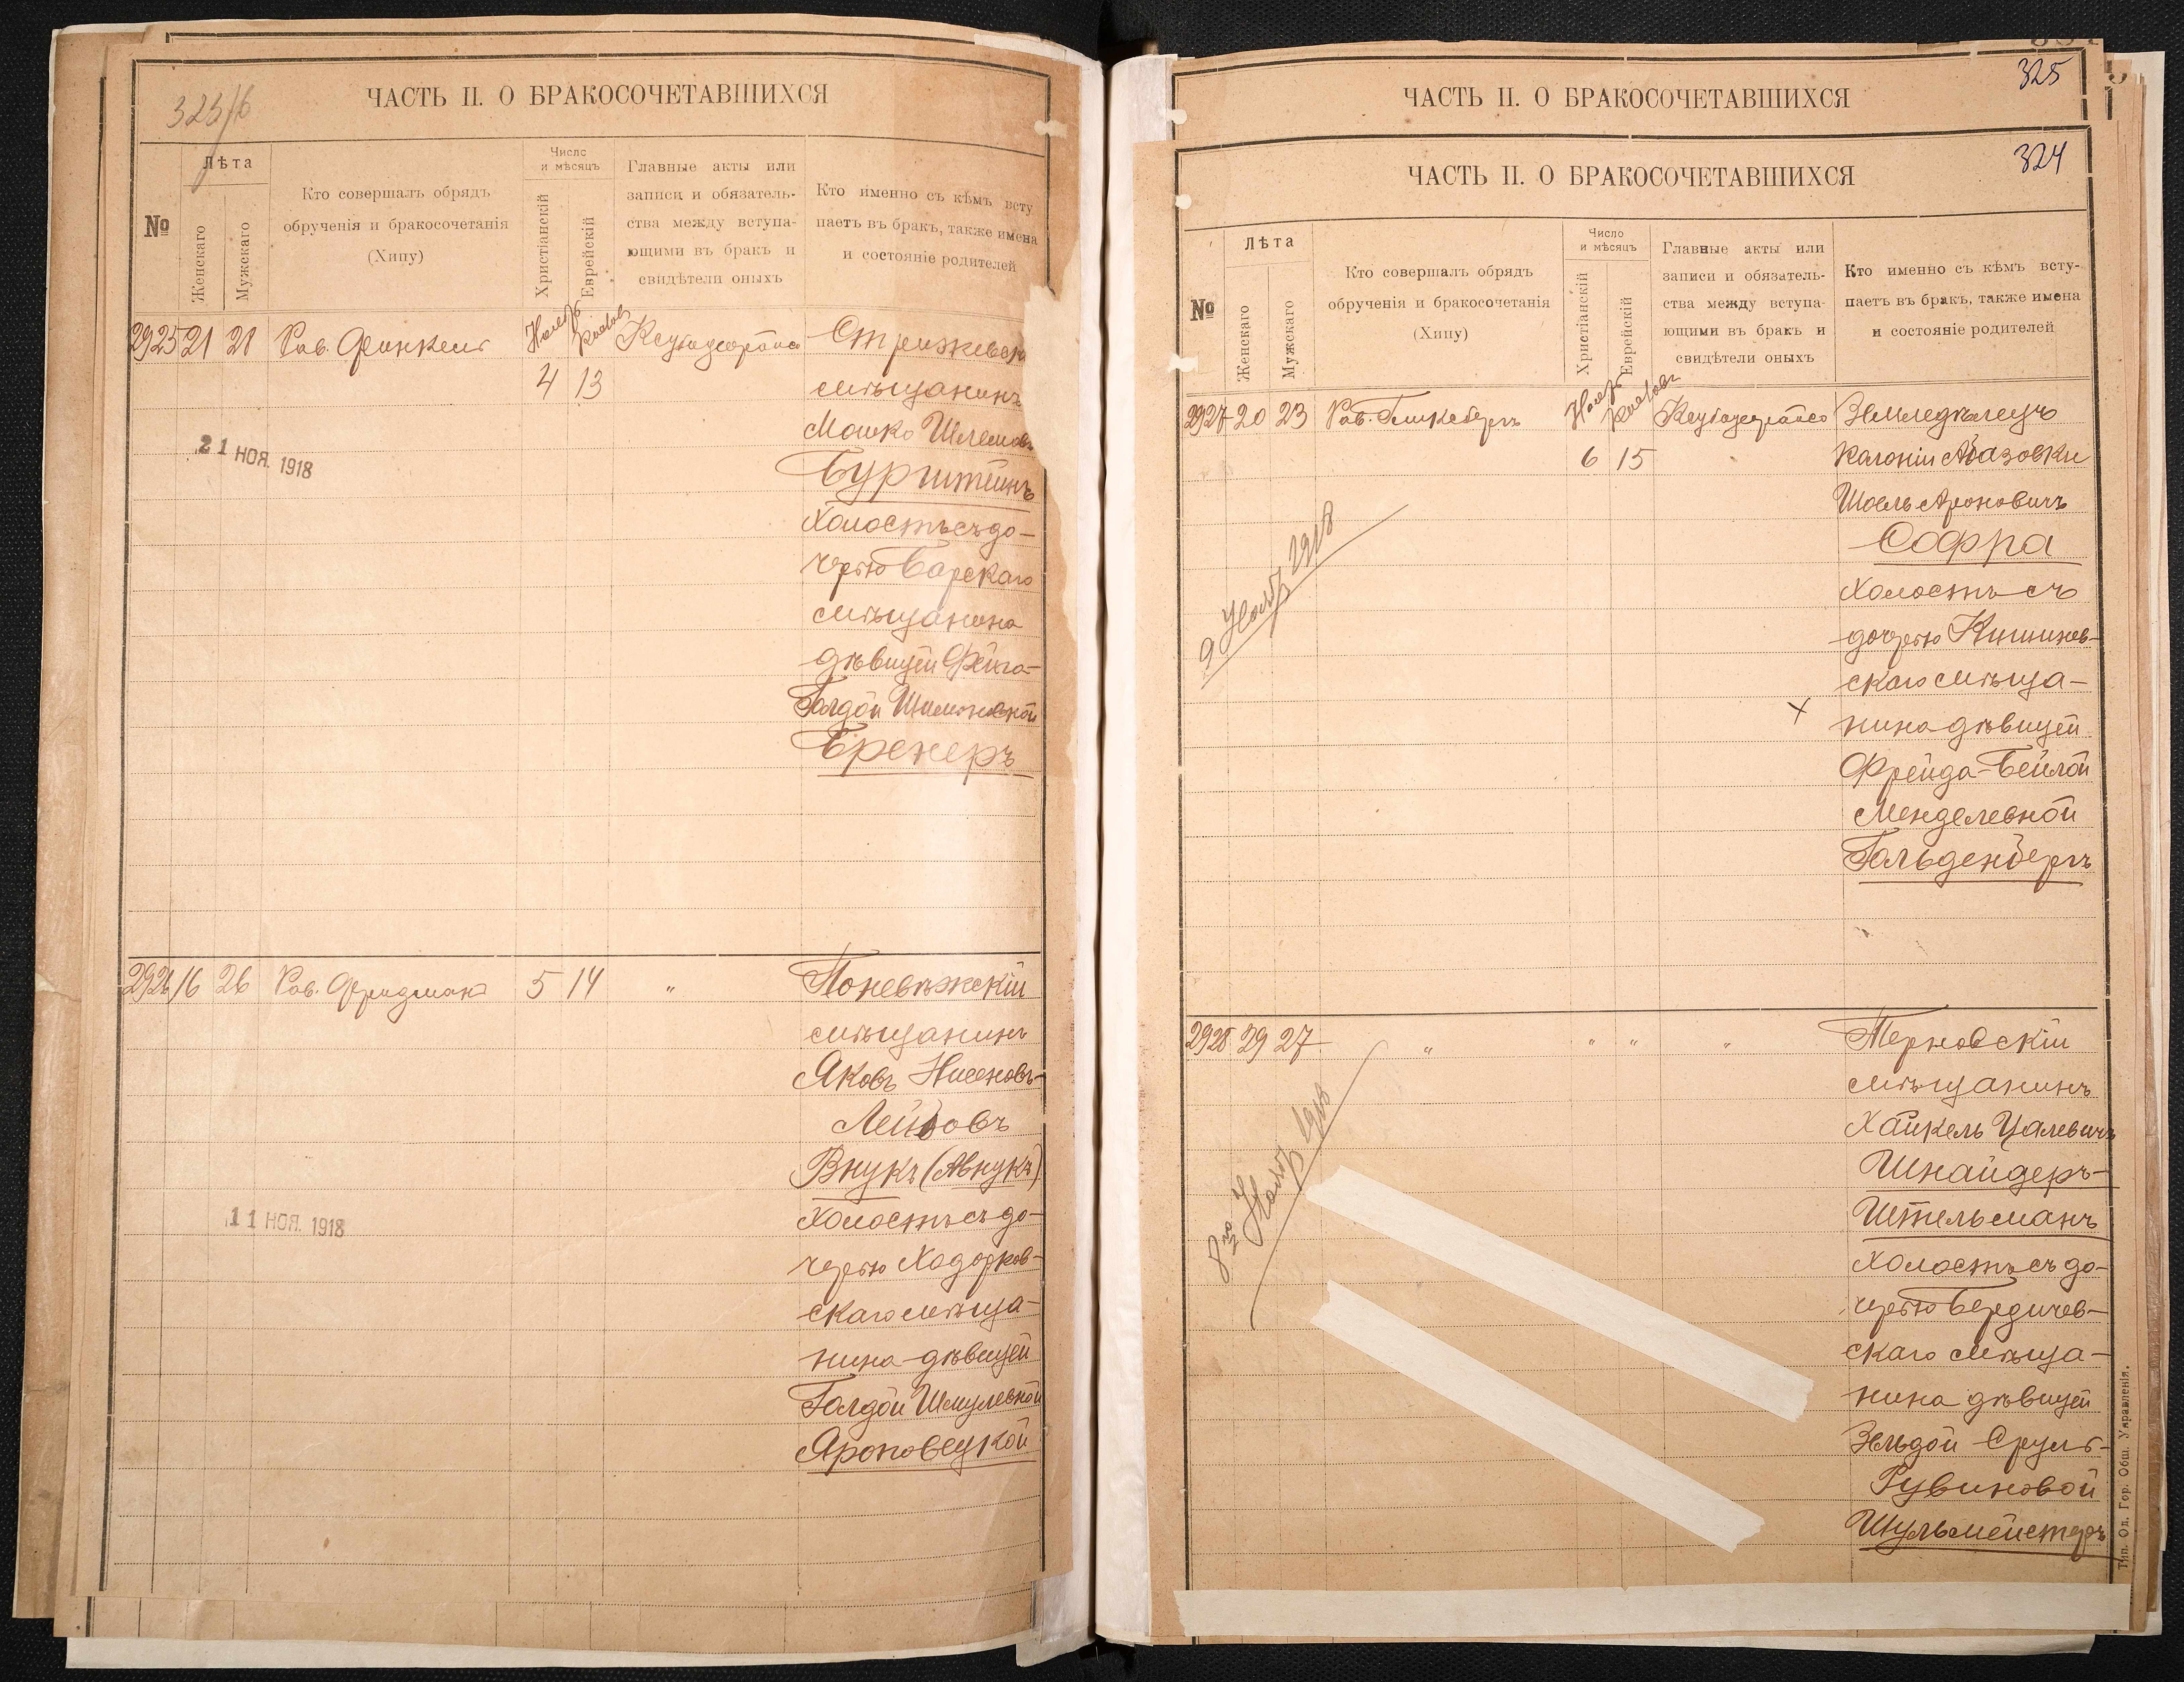 323/б
ЧАСТЬ II. О БРАКОСОЧЕТАВШИХСЯ
№
Лѣта
Женскаго
Мужскаго
Кто совершалъ обрядъ
обрученія и бракосочетанія
(Хипу)
Число
и мѣсяцъ
Христіанскій
Еврейскій
Главные акты или
записи и обязатель-
ства между вступа-
ющими въ бракъ и
свидѣтели оныхъ
Кто именно съ кѣмъ всту
паетъ въ бракъ, также имена
и состояніе родителей
2925 21 21 Рав. Финкель
4 13
Стрижевск
мѣщанинъ
Мошко Шлемов
Бурштейнъ
холостъ съ до-
черью Барскаго
мѣщанина
дѣвицей Фейга-
Голдой Шимоновной
Бренеръ
21 НОЯ. 1918
2926 16 26 Рав. Фридман 5 14 "
Поневѣжскій
мѣщанинъ
Яковъ Нисеновъ-
Лейбовъ
Внукъ (Авнукъ)
холостъ съ до-
черью Ходорков-
скаго мѣща-
нина дѣвицей
Голдой Шмулевной
Яроповецкой
11 НОЯ. 1918
325
ЧАСТЬ II. О БРАКОСОЧЕТАВШИХСЯ
324
ЧАСТЬ II. О БРАКОСОЧЕТАВШИХСЯ
№
Лѣта
Женскаго
Мужскаго
Кто совершалъ обрядъ
обрученія и бракосочетанія
(Хипу)
Число
и мѣсяцъ
Христіанскій
Еврейскій
Главные акты или
записи и обязатель-
ства между вступа-
ющими въ бракъ и
свидѣтели оныхъ
Кто именно съ кѣмъ всту-
паетъ въ бракъ, также имена
и состояніе родителей
2927 20 23 Рав.
6 15
Земледѣлецъ
колоніи Абазовки
Шоель Ароновичъ
Софра
холостъ съ
дочерью Кишинев-
скаго мѣща-
нина дѣвицей
Фрейда-Бейлой
Менделевной
Гольденбергъ
9 Нояб 1918
2928 29 27 " " " "
Терновскій
мѣщанинъ
Хайкель Цалевичъ
Шнайдеръ-
Штельманъ
холостъ съ до-
черью Бердичев-
скаго мѣща-
нина дѣвицей
Зельдой Сруль-
Рувиновой
Шульмейстеръ
8го Нояб 1918
Тип. Од. Гор. Общ. Управленія.